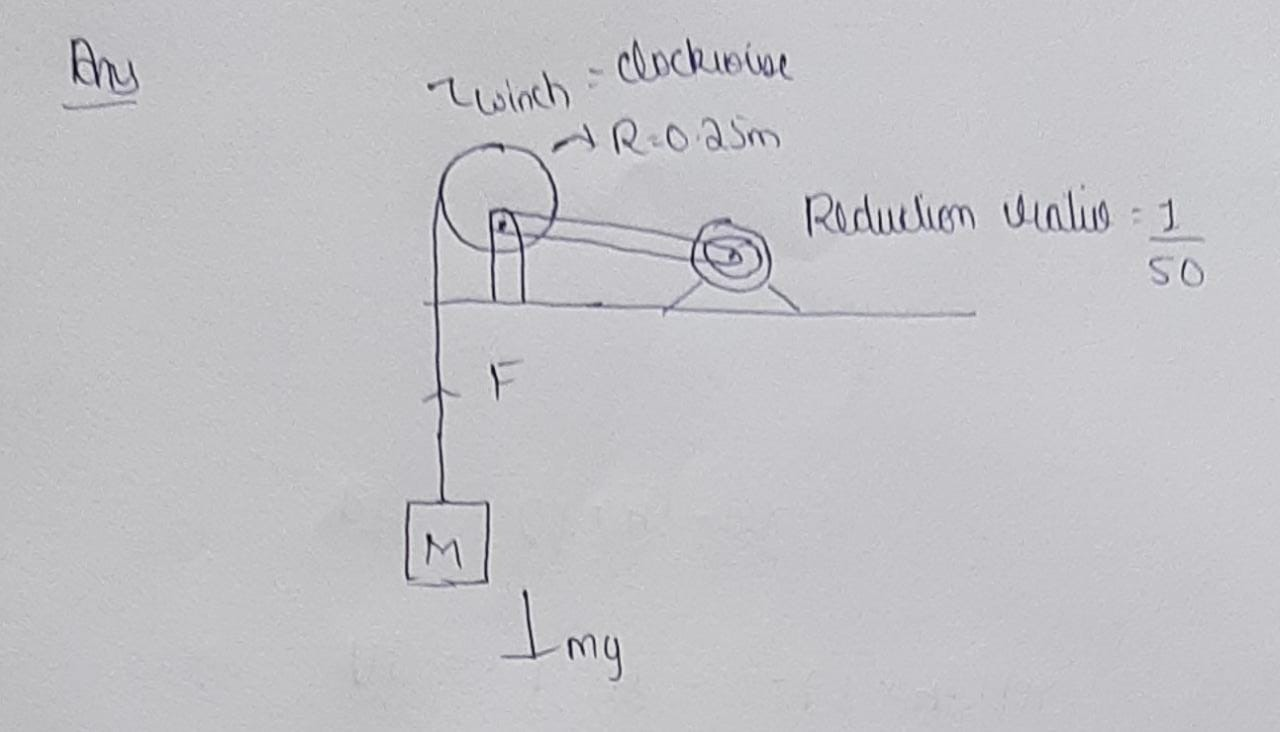 Ans
τwinch = clockwise
R=0.25m
Reduction ratio = 1/50
F
M
mg